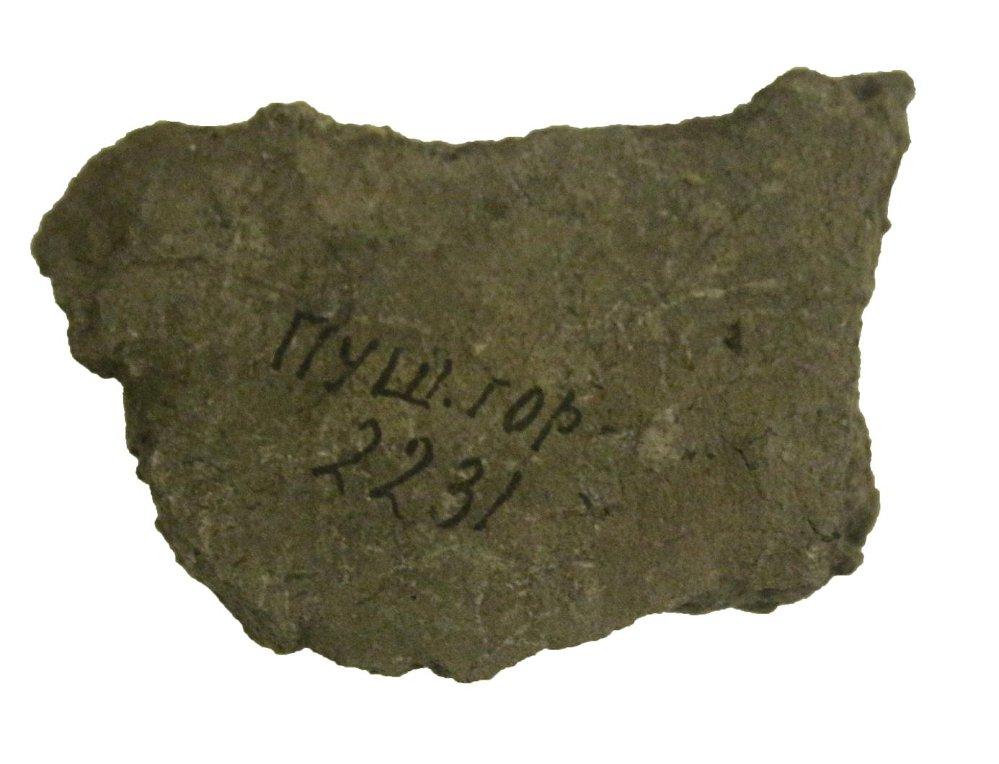 ПУШ.ГОР.
2231